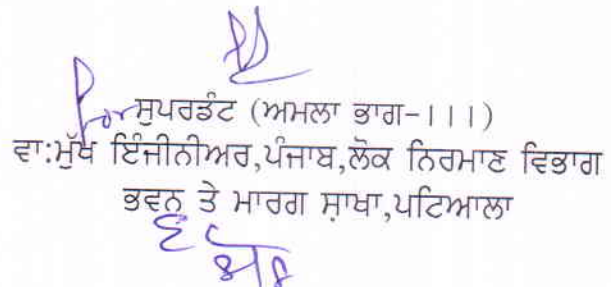 For
ਸੁਪਰਡੰਟ (ਅਮਲਾ ਭਾਗ-।।।)
ਵਾ:ਮੁੱਖ ਇੰਜੀਨੀਅਰ,ਪੰਜਾਬ,ਲੋਕ ਨਿਰਮਾਣ ਵਿਭਾਗ
ਭਵਨ ਤੇ ਮਾਰਗ ਸ਼ਾਖਾ,ਪਟਿਆਲਾ